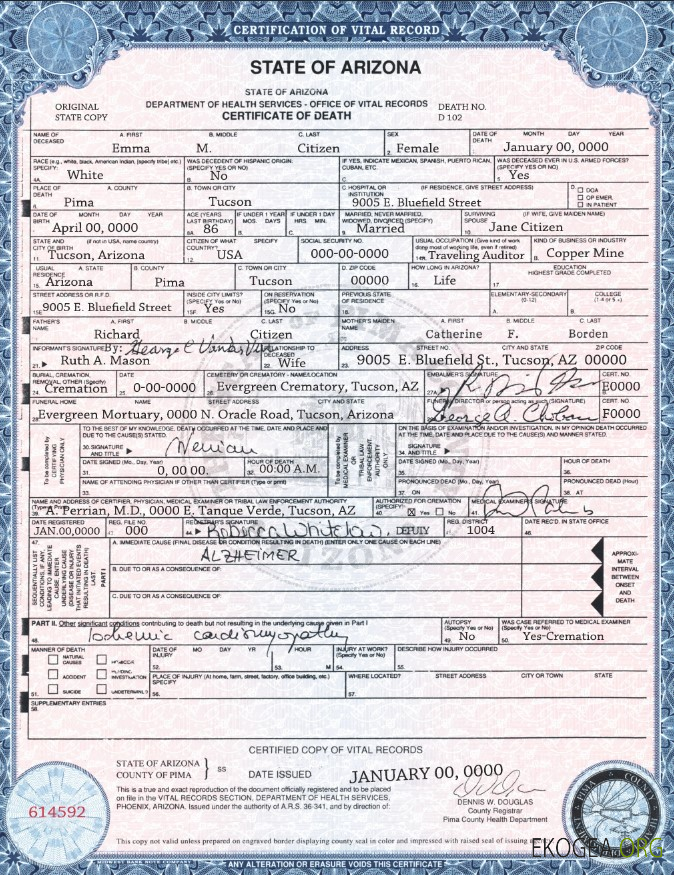 CERTIFICATION OF VITAL RECORD
STATE OF ARIZONA
STATE OF ARIZONA
DEPARTMENT OF HEALTH SERVICES - OFFICE OF VITAL RECORDS
CERTIFICATE OF DEATH
ORIGINAL
STATE COPY
DEATH NO.
D 102
NAME OF DECEASED A. FIRST B. MIDDLE C. LAST SEX DATE OF DEATH MONTH DAY YEAR
Emma M. Citizen 2. Female January 00, 0000
RACE (e.g., white, black, American Indian, (specify tribe) etc.) SPECIFY: WAS DECEDENT OF HISPANIC ORIGIN: (SPECIFY YES OR NO) IF YES, INDICATE MEXICAN, SPANISH, PUERTO RICAN, CUBAN, ETC. WAS DECEASED EVER IN U.S. ARMED FORCES? (SPECIFY YES OR NO)
4A. White B. No C. 5. Yes
PLACE OF DEATH A. COUNTY B. TOWN OR CITY C. HOSPITAL OR INSTITUTION (IF RESIDENCE, GIVE STREET ADDRESS) D. DOA OP EMER. IN PATIENT
6. Pima Tucson 9005 E. Bluefield Street
DATE OF BIRTH MONTH DAY YEAR AGE (YEARS LAST BIRTHDAY) B. IF UNDER 1 YEAR MOS. DAYS C. IF UNDER 1 DAY HRS. MIN. MARRIED, NEVER MARRIED, WIDOWED, DIVORCED (SPECIFY) SURVIVING SPOUSE (IF WIFE, GIVE MAIDEN NAME)
7. April 00, 0000 8A. 86 B. C. 9. Married 10. Jane Citizen
STATE AND CITY OF BIRTH (if not in USA, name country) CITIZEN OF WHAT COUNTRY? SPECIFY SOCIAL SECURITY NO. USUAL OCCUPATION (Give kind of work done most of working life, even if retired) KIND OF BUSINESS OR INDUSTRY
11. Tucson, Arizona 12. USA 000-00-0000 14A. Traveling Auditor B. Copper Mine
USUAL RESIDENCE A. STATE B. COUNTY C. TOWN OR CITY D. ZIP CODE HOW LONG IN ARIZONA? EDUCATION HIGHEST GRADE COMPLETED
15. Arizona Pima Tucson 00000 16. Life 17.
STREET ADDRESS OR R.F.D. INSIDE CITY LIMITS? (SPECIFY Yes or No) ON RESERVATION (SPECIFY Yes or No) PREVIOUS STATE OF RESIDENCE A. ELEMENTARY-SECONDARY (0-12) B. COLLEGE (1-4 or 5+)
15E. 9005 E. Bluefield Street 15F. Yes 15G. No 18.
FATHER'S NAME A. FIRST B. MIDDLE C. LAST MOTHER'S MAIDEN NAME A. FIRST B. MIDDLE C. LAST
Richard Citizen Catherine F. Borden
INFORMANT'S SIGNATURE By: RELATIONSHIP TO DECEASED ADDRESS STREET NO. CITY AND STATE ZIP CODE
21. Ruth A. Mason 22. Wife 23. 9005 E. Bluefield St., Tucson, AZ 00000
BURIAL, CREMATION, REMOVAL, OTHER (Specify) DATE CEMETERY OR CREMATORY - NAME/LOCATION EMBALMER'S SIGNATURE CERT. NO
24. Cremation 25. 0-00-0000 26. Evergreen Crematory, Tucson, AZ 27A. E0000
FUNERAL HOME NAME STREET ADDRESS CITY AND STATE FUNERAL DIRECTOR or person acting as such (SIGNATURE) CERT. NO.
28. Evergreen Mortuary, 0000 N. Oracle Road, Tucson, Arizona F0000
To be completed by CERTIFYING PHYSICIAN ONLY
TO THE BEST OF MY KNOWLEDGE, DEATH OCCURRED AT THE TIME, DATE AND PLACE AND DUE TO THE CAUSE(S) STATED.
30. SIGNATURE AND TITLE
DATE SIGNED (Mo., Day, Year) HOUR OF DEATH
31. 0, 00 00. 32. 00:00 A.M.
NAME OF ATTENDING PHYSICIAN IF OTHER THAN CERTIFIER (Type or print)
33.
To be completed by MEDICAL EXAMINER OR TRIBAL LAW ENFORCEMENT AUTHORITY ONLY
ON THE BASIS OF EXAMINATION AND/OR INVESTIGATION, IN MY OPINION DEATH OCCURRED AT THE TIME, DATE AND PLACE AND DUE TO THE CAUSE(S) AND MANNER STATED.
SIGNATURE
34. AND TITLE:
DATE SIGNED (Mo., Day, Year) HOUR OF DEATH
35. 36.
PRONOUNCED DEAD (Mo., Day, Year) PRONOUNCED DEAD (Hour)
37. ON 38. AT
NAME AND ADDRESS OF CERTIFIER, PHYSICIAN, MEDICAL EXAMINER OR TRIBAL LAW ENFORCEMENT AUTHORITY AUTHORIZED FOR CREMATION (SPECIFY) MEDICAL EXAMINER'S SIGNATURE
39. A. Perrian, M.D., 0000 E, Tanque Verde, Tucson, AZ 40. Yes No 41.
DATE REGISTERED REG. FILE NO. REGISTRAR'S SIGNATURE REG. DISTRICT DATE REC'D. IN STATE OFFICE
JAN.00,0000 000 DEPUTY 1004 46.
47.
SEQUENTIALLY LIST CONDITIONS, IF ANY, LEADING TO IMMEDIATE CAUSE. ENTER UNDERLYING CAUSE (DISEASE OR INJURY THAT INITIATED EVENTS RESULTING IN DEATH) LAST. PART I
A. IMMEDIATE CAUSE (FINAL DISEASE OR CONDITION RESULTING IN DEATH) (ENTER ONLY ONE CAUSE ON EACH LINE)
ALZHEIMER
B. DUE TO OR AS A CONSEQUENCE OF:
C. DUE TO OR AS A CONSEQUENCE OF:
APPROXIMATE INTERVAL BETWEEN ONSET AND DEATH
PART II. Other significant conditions contributing to death but not resulting in the underlying cause given in Part I AUTOPSY (Specify Yes or No) WAS CASE REFERRED TO MEDICAL EXAMINER (Specify Yes or No)
48. Ischemic cardiomyopathy 49. No 50. Yes-Cremation
MANNER OF DEATH DATE OF INJURY MO DAY YR HOUR INJURY AT WORK? (Specify Yes or No) DESCRIBE HOW INJURY OCCURRED
NATURAL CAUSES HOMICIDE 52. 53. M 54. 55.
ACCIDENT PENDING INVESTIGATION PLACE OF INJURY (At home, farm, street, factory, office building, etc.) SPECIFY WHERE LOCATED? STREET ADDRESS CITY OR TOWN STATE
51. SUICIDE UNDETERMINED 56. 57.
SUPPLEMENTARY ENTRIES
58.
CERTIFIED COPY OF VITAL RECORDS
STATE OF ARIZONA
COUNTY OF PIMA } SS DATE ISSUED JANUARY 00, 0000
This is a true and exact reproduction of the document officially registered and to be placed
on file in the VITAL RECORDS SECTION, DEPARTMENT OF HEALTH SERVICES,
PHOENIX, ARIZONA. Issued under the authority of A.R.S. 36-341, and by direction of:
DENNIS W. DOUGLAS
County Registrar
Pima County Health Department
614592
PIMA COUNTY
This copy not valid unless prepared on engraved border displaying county seal in color and impressed with raised seal of issuing
EKOGEA.ORG
MIDWEST BANK NOTE COMPANY
ANY ALTERATION OR ERASURE VOIDS THIS CERTIFICATE